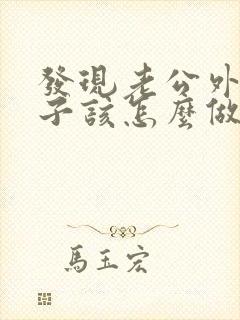 發現老公外
子該怎麼做
馬玉宏